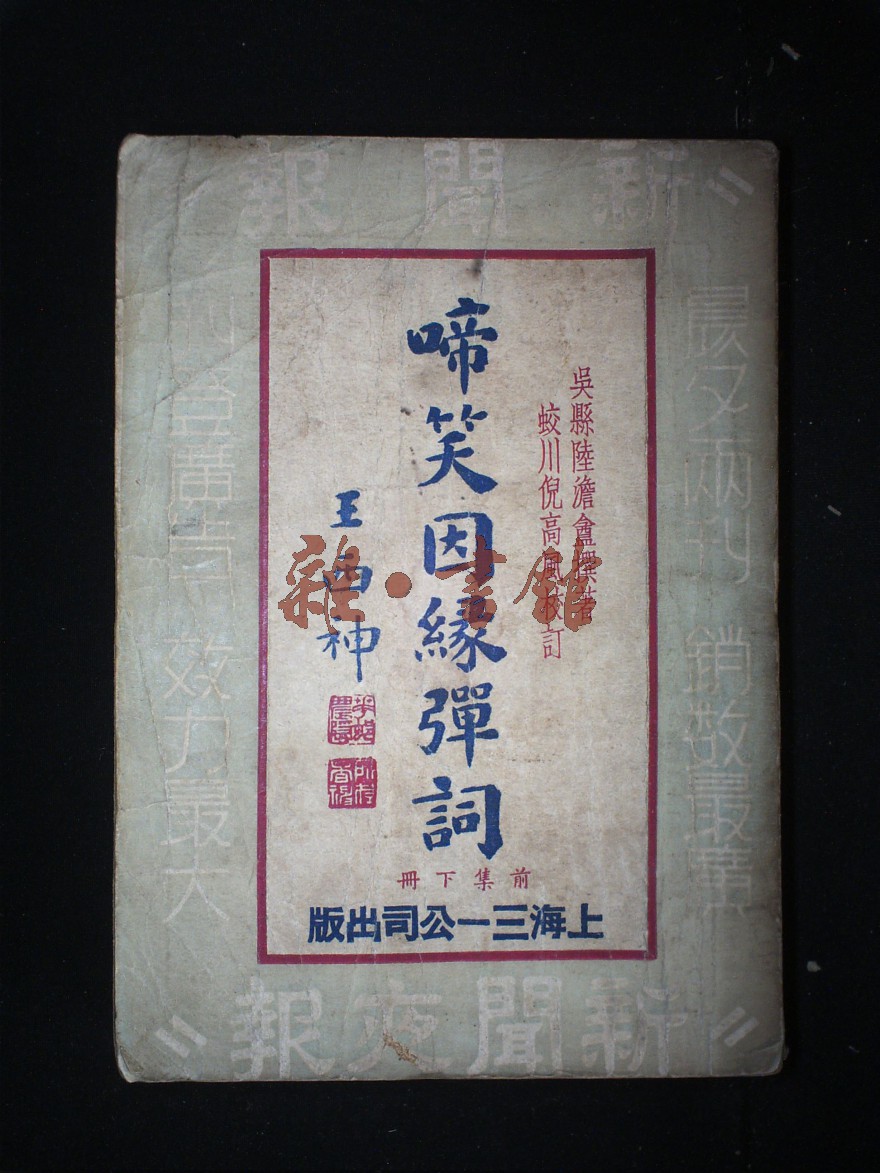 新聞報
晨夕兩刊 銷數最廣
吳縣陸澹盦撰著
蛟川倪高風校訂
啼笑因緣彈詞
王西神
前集下冊
上海三一公司出版
登廣告 效力最大
新聞夜報
雜·書館